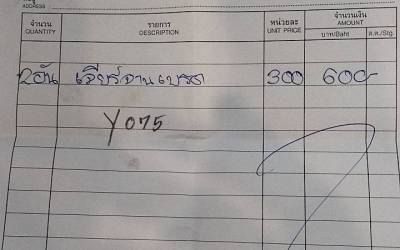 ADDRESS
จำนวน รายการ หน่วยละ จำนวนเงิน
QUANTITY DESCRIPTION UNIT PRICE AMOUNT
บาท/Baht ส.ต./Stg.
2อัน เจียร์จานเบรค 300 600-
Y075